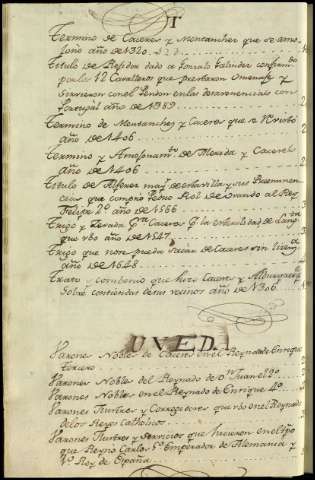 T
Termino de Caceres y Montanchez que se amo
jono año de 1320
Titulo de Rejidor dado a Gonzalo Galindez confirm
por los 12 Cavalleros que prestaron Omenaje y
sirvieron con el Pendon en las desavenencias con
Portugal año de 1389
Termino de Montanchez y Caceres que se Visitó
año de 1406
Termino y Amojonam.to de Merida y Caceres
año de 1406
Titulo de Alferez may.r de esta villa y sus Preeminen
cias que compro Pedro Rol de Ovando al Rey
Felipe 2.º año de 1566
Trigo y Cevada
que vbo año de 1547
Trigo que non pueda sacar de Caceres sin licen.a
año de 1648
Trato y combenio que hizo Caceres y Alburquerq.e
sobre contiendas de sus vecinos año de 1306
U V E D
Varones Nobles de Caceres en el Reynado de Enrique
tercero
Varones Nobles del Reynado de D.n Juan el 2.º
Varones Nobles en el Reynado de Enrique 4.º
Varones Ilustres y Corregidores que vbo en el Reynado
de los Reyes Catholicos
Varones Ilustres y servicios que hicieron en el tpo
que Reynó Carlos 5.º Emperador de Alemania y
1.º Rey de España